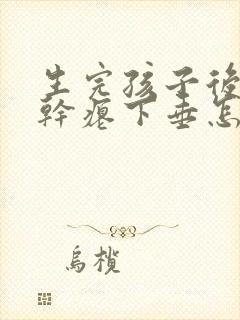 生完孩子後
幹癟下垂怎
烏欖